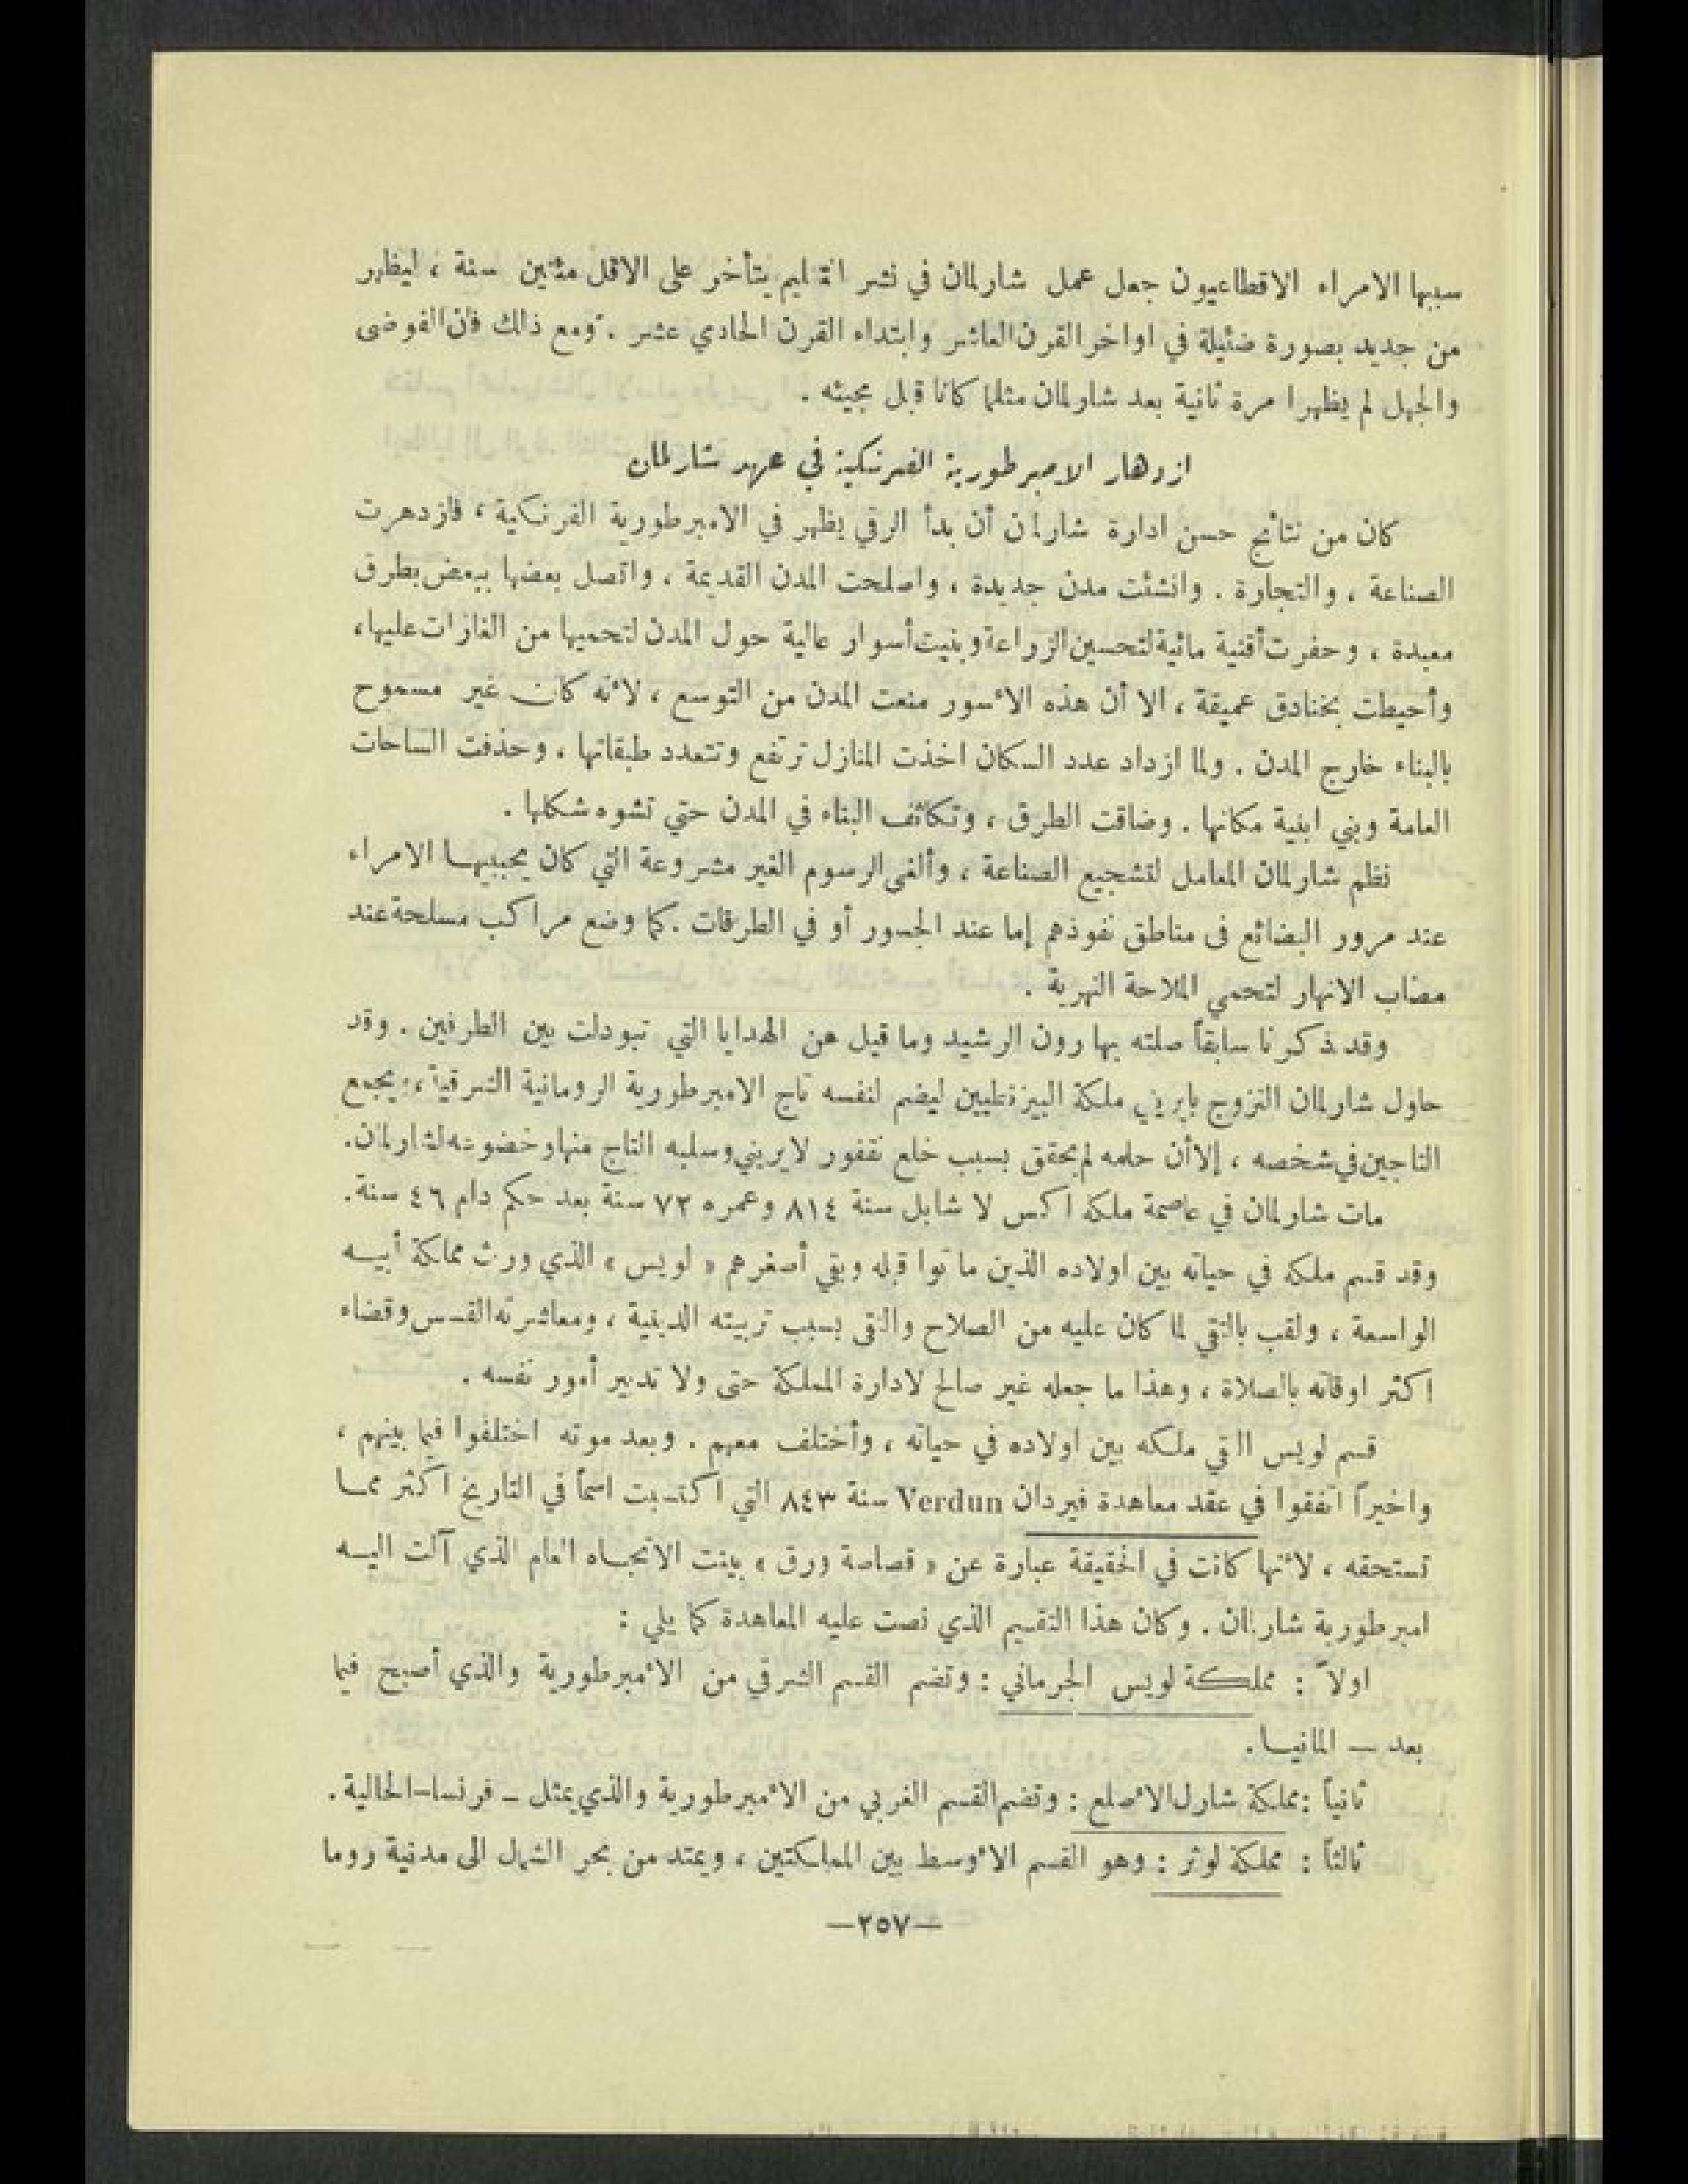 سببها الامراء الاقطاعيون جعل عمل شارلمان في نشر التعليم يتأخر على الاقل مئتين سنة ، ليظهر
من جديد بصورة ضئيلة في اواخر القرن العاشر وابتداء القرن الحادي عشر . ومع ذالك فان الفوضى
والجهل لم يظهرا مرة ثانية بعد شارلمان مثلما كانا قبل مجيئه .
ازدهار الامبرطورية الفرنكية في عهد شارلمان
كان من نتائج حسن ادارة شارلمان أن بدأ الرقي يظهر في الامبرطورية الفرنكية ، فازدهرت
الصناعة ، والتجارة . وانشئت مدن جديدة ، واصلحت المدن القديمة ، واتصل بعضها ببعض بطرق
معبدة ، وحفرت أقنية مائية لتحسين الزراعة وبنيت أسوار عالية حول المدن لتحميها من الغازات عليها،
وأحيطت بخنادق عميقة ، الا أن هذه الأسور منعت المدن من التوسع ، لأنه كان غير مسموح
بالبناء خارج المدن . ولما ازداد عدد السكان اخذت المنازل ترتفع وتتعدد طبقاتها ، وحذفت الساحات
العامة وبني ابنية مكانها . وضاقت الطرق ، وتكاثف البناء في المدن حتي تشوه شكلها .
نظم شارلمان المعامل لتشجيع الصناعة ، وألغى الرسوم الغير مشروعة التي كان يجبيها الامراء
عند مرور البضائع فى مناطق نفوذهم إما عند الجسور أو في الطرقات . كما وضع مراكب مسلحة عند
مصاب الانهار لتحمي الملاحة النهرية .
وقد ذكرنا سابقاً صلته بهارون الرشيد وما قيل عن الهدايا التي تبودلت بين الطرفين . وقد
حاول شارلمان التزوج بايريني ملكة البيزنطيين ليضم لنفسه تاج الامبرطورية الرومانية الشرقية ، ويجمع
التاجين في شخصه ، إلا أن حلمه لم يحقق بسبب خلع نقفور لايريني وسلبه التاج منها وخضوعه لشارلمان.
مات شارلمان في عاصمة ملكه اكس لا شابل سنة ٨١٤ وعمره ٧٢ سنة بعد حكم دام ٤٦ سنة.
وقد قسم ملكه في حياته بين اولاده الذين ماتوا قبله وبقي أصغرهم « لويس » الذي ورث مملكة أبيه
الواسعة ، ولقب بالتقي لما كان عليه من الصلاح والتقى بسبب تربيته الدينية ، ومعاشرته القسس وقضاء
اكثر اوقاته بالصلاة ، وهذا ما جعله غير صالح لادارة المملكة حتى ولا تدبير أمور نفسه .
قسم لويس التقي ملكه بين اولاده في حياته ، وأختلف معهم . وبعد موته اختلفوا فيما بينهم ،
واخيراً اتفقوا في عقد معاهدة فيردان Verdun سنة ٨٤٣ التي اكتسبت اسماً في التاريخ اكثر مما
تستحقه ، لأنها كانت في الحقيقة عبارة عن « قصاصة ورق » بينت الاتجاه العام الذي آلت اليه
امبرطورية شارلمان . وكان هذا التقسيم الذي نصت عليه المعاهدة كما يلي :
اولاً : مملكة لويس الجرماني : وتضم القسم الشرقي من الأمبرطورية والذي أصبح فيما
بعد — المانيا .
ثانياً : مملكة شارل الأصلع : وتضم القسم الغربي من الأمبرطورية والذي يمثل — فرنسا—الحالية .
ثالثاً : مملكة لوثر : وهو القسم الأوسط بين المملكتين ، ويمتد من بحر الشمال الى مدنية روما
—٢٥٧—